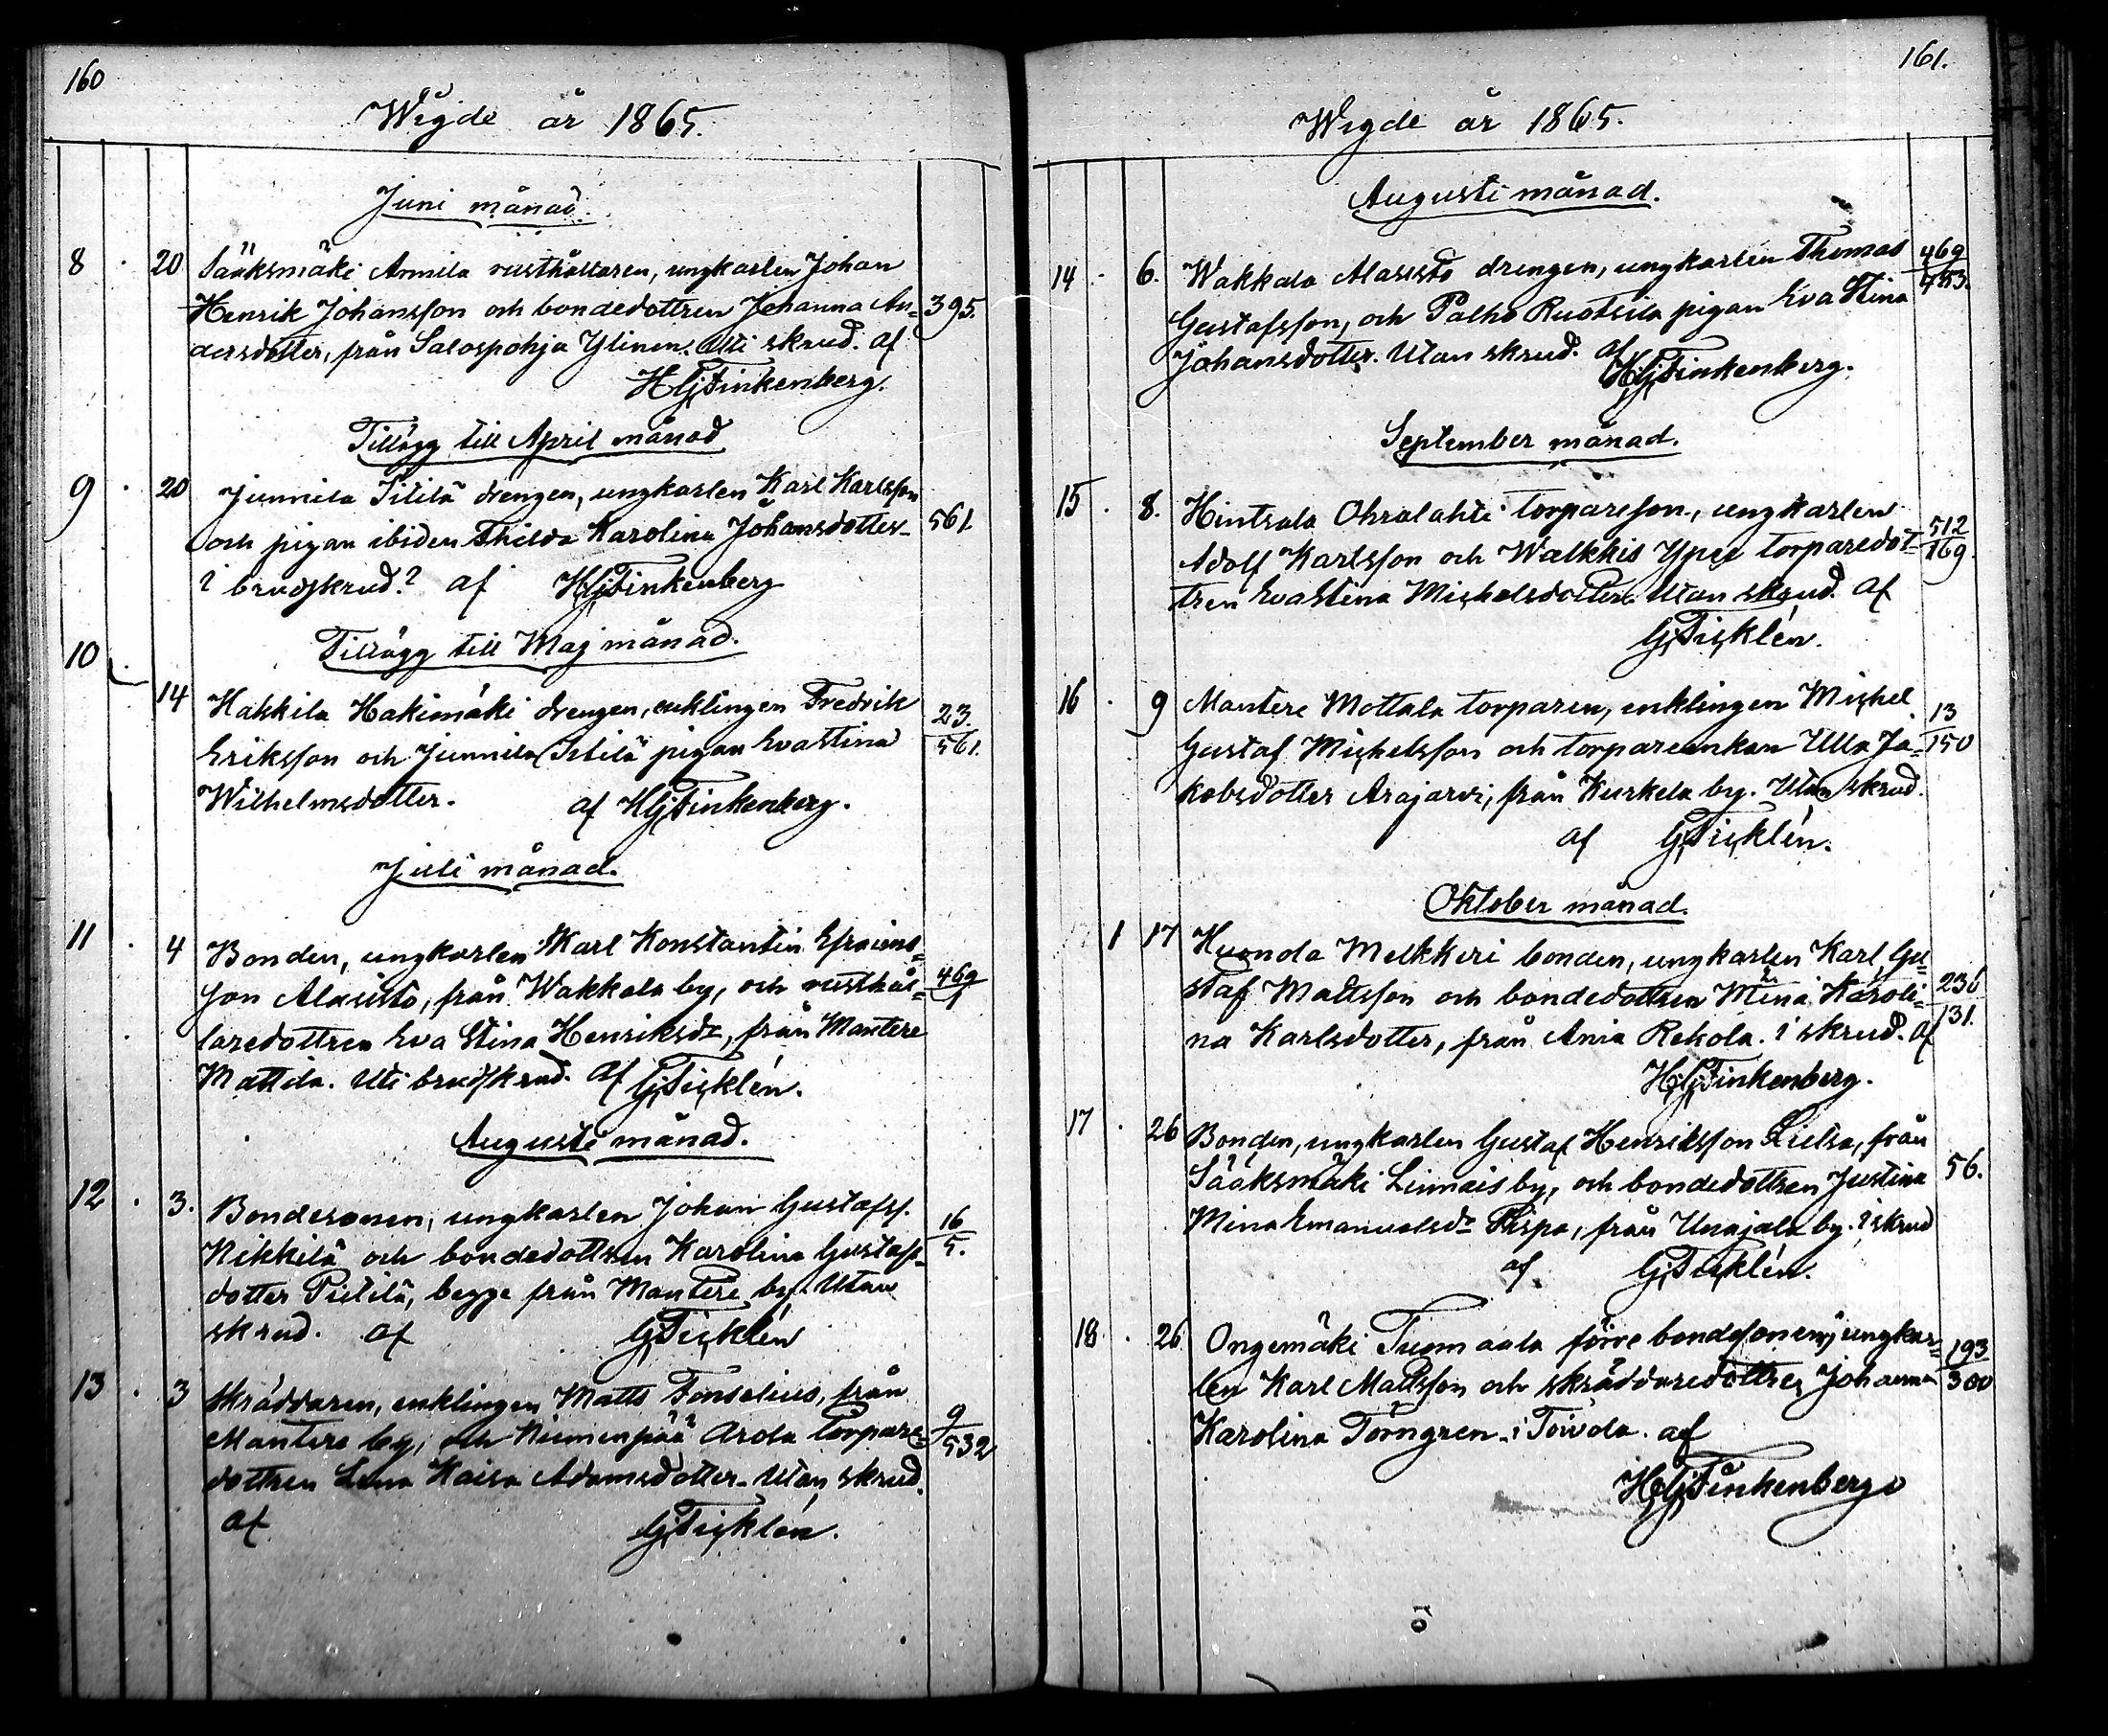 160
Wigde år 1865.
Juni månad.
8 . 20 Sääksmäki Annila rusthållaren, ungkarlen Johan
Henrik Johansson och bondedottren Johanna An= 395.
dersdotter, från Salospohja Ylinen. Uti skrud. af
HGTinkenberg.
Tillägg till April månad
9 . 20 Junnila Itilä drengen, ungkarlen Karl Karlsson
och pigan ibidem Thilda Karolina Johansdotter 561.
i brudskrud? af HGTinkenberg
10 Tillägg till Maj månad.
14 Hakkila Hakimäki drengen, enklingen Fredrik 23.
Eriksson och Junnila Itilä pigan Eva Stina 561.
Wilhelmsdotter. af HGTinkenberg.
Juli månad.
11 . 4 Bonden, ungkarlen Karl Konstantin Efraims=
son Alasisto, från Wakkala by, och rusthål= 469/1
laredottren Eva Stina Henriksdr, från Mantere
Mattila. Uti brudskrud. af GTicklén.
Augusti månad.
12 . 3. Bondesonen, ungkarlen Johan Gustafss.
Nikkilä och bondedottren Karolina Gustafs= 16/5.
dotter Pietilä, begge från Mantere by. Utan
skrud. af GTicklén
13 . 3 Skräddaren, enklingen Matts Fonselius, från
Mantere by, och Niemenpää Arola torpare= 9/532
dottren Lena Kaisa Adamsdotter. Utan skrud.
af GTicklén.
161.
Wigde år 1865.
Augusti månad.
14 . 6. Wakkala Alasisto drengen, ungkarlen Thomas 469
Gustafsson, och Palho Ruotsila pigan Eva Stina
Johansdotter. Utan skrud. af
HGTinkenberg.
September månad.
15 . 8. Hintsala Ohralahti torpareson, ungkarlen
Adolf Karlsson och Walkkis torparedot= 512/169.
tren Eva Stina Michelsdotter. Utan skrud. af
GTicklén.
16 . 9 Mantere Mottala torparen, enklingen Michel 13
Gustaf Michelsson och torpareenkan Ulla Ja= 150
kobsdotter Arajärvi, från Kurkela by. Utan skrud.
af GTicklén.
Oktober månad.
1 17 Huonola Melkkeri bonden, ungkarlen Karl Gu=
staf Mattsson och bondedottren Mina Karoli= 236
na Karlsdotter, från Ania Rekola. i skrud. af 131.
HGTinkenberg.
17 . 26 Bonden, ungkarlen Gustaf Henriksson från
Sääksmäki Linnais by, och bondedottren Justina 56.
Mina Emanuelsdr Pispa, från Urajala by. i skrud
af GTicklén.
18 . 26 Ongemäki Tuomaala förre bondesonen, ungkar= 193
len Karl Mattsson och skräddaredottren Johanna 300
Karolina Törngren i Toivola. af
HGTinkenberg